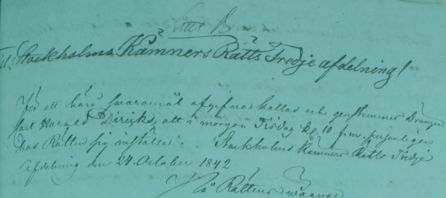 Litt B
Till Stockholms Kämners Rätts Tredje afdelning!
För att häröfver svaromål afgifva kallas och genstämmer Drängen
Carl Harald Dirisks, att i morgon Tisdag kl. 10 f.m. personligen
hos Rätten sig inställa. Stockholms Kämners Rätts Tredje
Afdelning den 24 October 1842
På Rättens vägnar